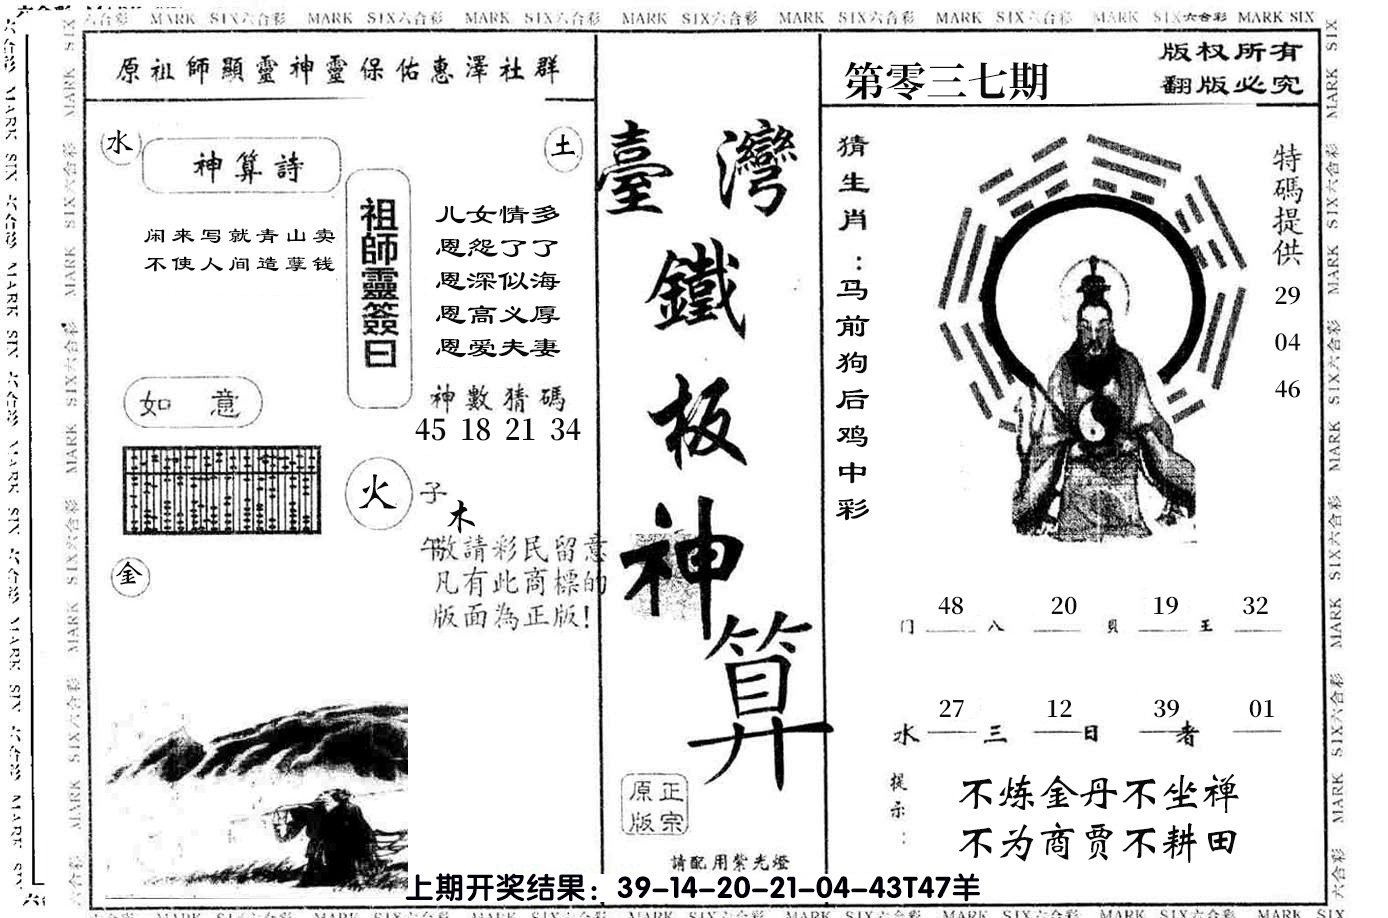 MARK SIX六合彩 MARK SIX六合彩 MARK SIX六合彩 MARK SIX六合彩 MARK SIX六合彩 MARK SIX六合彩 MARK SIX六合彩 MARK SIX
原祖師顯靈神靈保佑惠澤社群
水
神算詩
土
闲来写就青山卖
不使人间造孽钱
祖師靈簽曰
儿女情多
恩怨了了
恩深似海
恩高义厚
恩爱夫妻
神數猜碼
45 18 21 34
如 意
火
子
木
午
敬請彩民留意
凡有此商標的
版面為正版!
金
臺灣
鐵
板
神
算
原正
版宗
請配用紫光燈
第零三七期
版权所有
翻版必究
猜生肖:马前狗后鸡中彩
特碼提供
29
04
46
48 20 19 32
门 八 貝 王
27 12 39 01
水 三 日 者
提示:
不炼金丹不坐禅
不为商贾不耕田
上期开奖结果：39-14-20-21-04-43T47羊